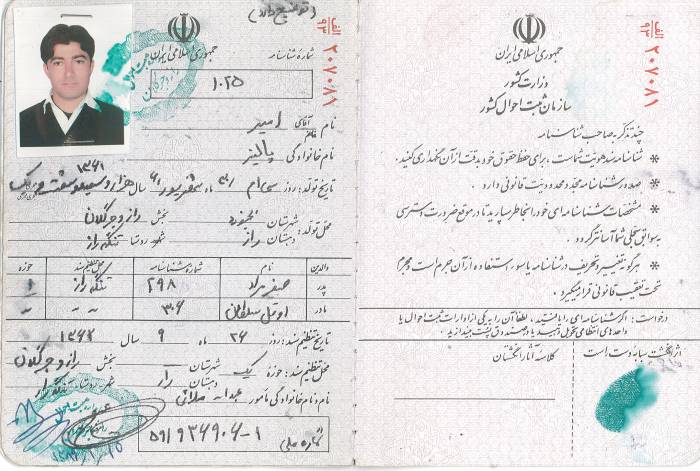 (توضیح دارد)
جمهوری اسلامی ایران
شماره شناسنامه
۱۰۲۵
الف ۹۳ ۲۰۷۰۸۱
نام آقای خانم امیر
نام خانوادگی: پالیز
تاریخ تولد: روز سی ام ۳۰ ماه شهریور سال هزار و سیصد و شصت و یک ۱۳۶۱
محل تولد: شهرستان بجنورد بخش راز و جرگلان
دهستان راز شهر روستا تنگه راز
والدین نام شماره شناسنامه محل تنظیم سند حوزه
پدر صفر مراد ۲۹۸ تنگه راز ۱
مادر سلطان ۳۰۶ " " "
تاریخ تنظیم سند: روز ۲۶ ماه ۹ سال ۱۳۶۲
محل تنظیم سند: حوزه یک شهرستان بخش راز و جرگلان
دهستان راز شهر روستا تنگه راز
نام و نام خانوادگی مامور
شماره ملی
الف ۹۳ ۲۰۷۰۸۱
جمهوری اسلامی ایران
وزارت کشور
سازمان ثبت احوال کشور
چند تذکر به صاحب شناسنامه
* شناسنامه سند هویت شماست، برای حفظ حقوق خود به دقت از آن نگهداری کنید.
* صدور شناسنامه مجدد محدودیت قانونی دارد.
* مشخصات شناسنامه ای خود را بخاطر بسپارید تا در موقع ضرورت دسترسی
به سوابق سجلی شما آسانتر گردد.
* هرگونه تغییر و تحریف در شناسنامه یا سوء استفاده از آن جرم است و مجرم
تحت تعقیب قانونی قرار میگیرد.
درخواست: اگر شناسنامه ای را یافتید، لطفاً آن را به یکی از ادارات ثبت احوال یا
واحدهای انتظامی تحویل دهید یا در صندوق پست بیندازید.
اثر انگشت سبابه دست است
کلاسه آثار انگشتان